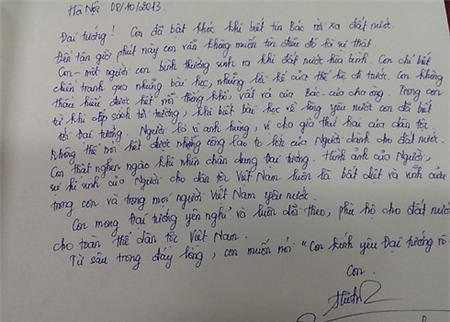 Hà Nội 08/10/2013.
Đại tướng! Con đã bật khóc khi biết tin Bác rời xa đất nước.
Đến tận giờ phút này con vẫn không muốn tin điều đó là sự thật.
Con - một người con bình thường sinh ra khi đất nước hòa bình. Con chỉ biết
chiến tranh qua những bài học, những lời kể của thế hệ đi trước. Con không
thấu hiểu được hết nỗi thống khổ, vất vả của Bác của cha ông. Trong con
từ khi cắp sách tới trường, khi biết bài học về lòng yêu nước con đã biết
tới Đại tướng. Người là vị anh hùng, vị cha già thứ hai của dân tộc.
Không thể nói hết được những công lao to lớn của Người dành cho đất nước.
Con thật nghẹn ngào khi nhìn chân dung Đại tướng. Hình ảnh của Người,
sự hi sinh của Người cho dân tộc Việt Nam luôn là bất diệt và vĩnh cửu
trong con và trong mọi người Việt Nam yêu nước.
Con mong Đại tướng yên nghỉ và luôn dõi theo, phù hộ cho đất nước
cho toàn thể dân tộc Việt Nam.
Từ sâu trong đáy lòng, con muốn nói "Con kính yêu Đại tướng
Con